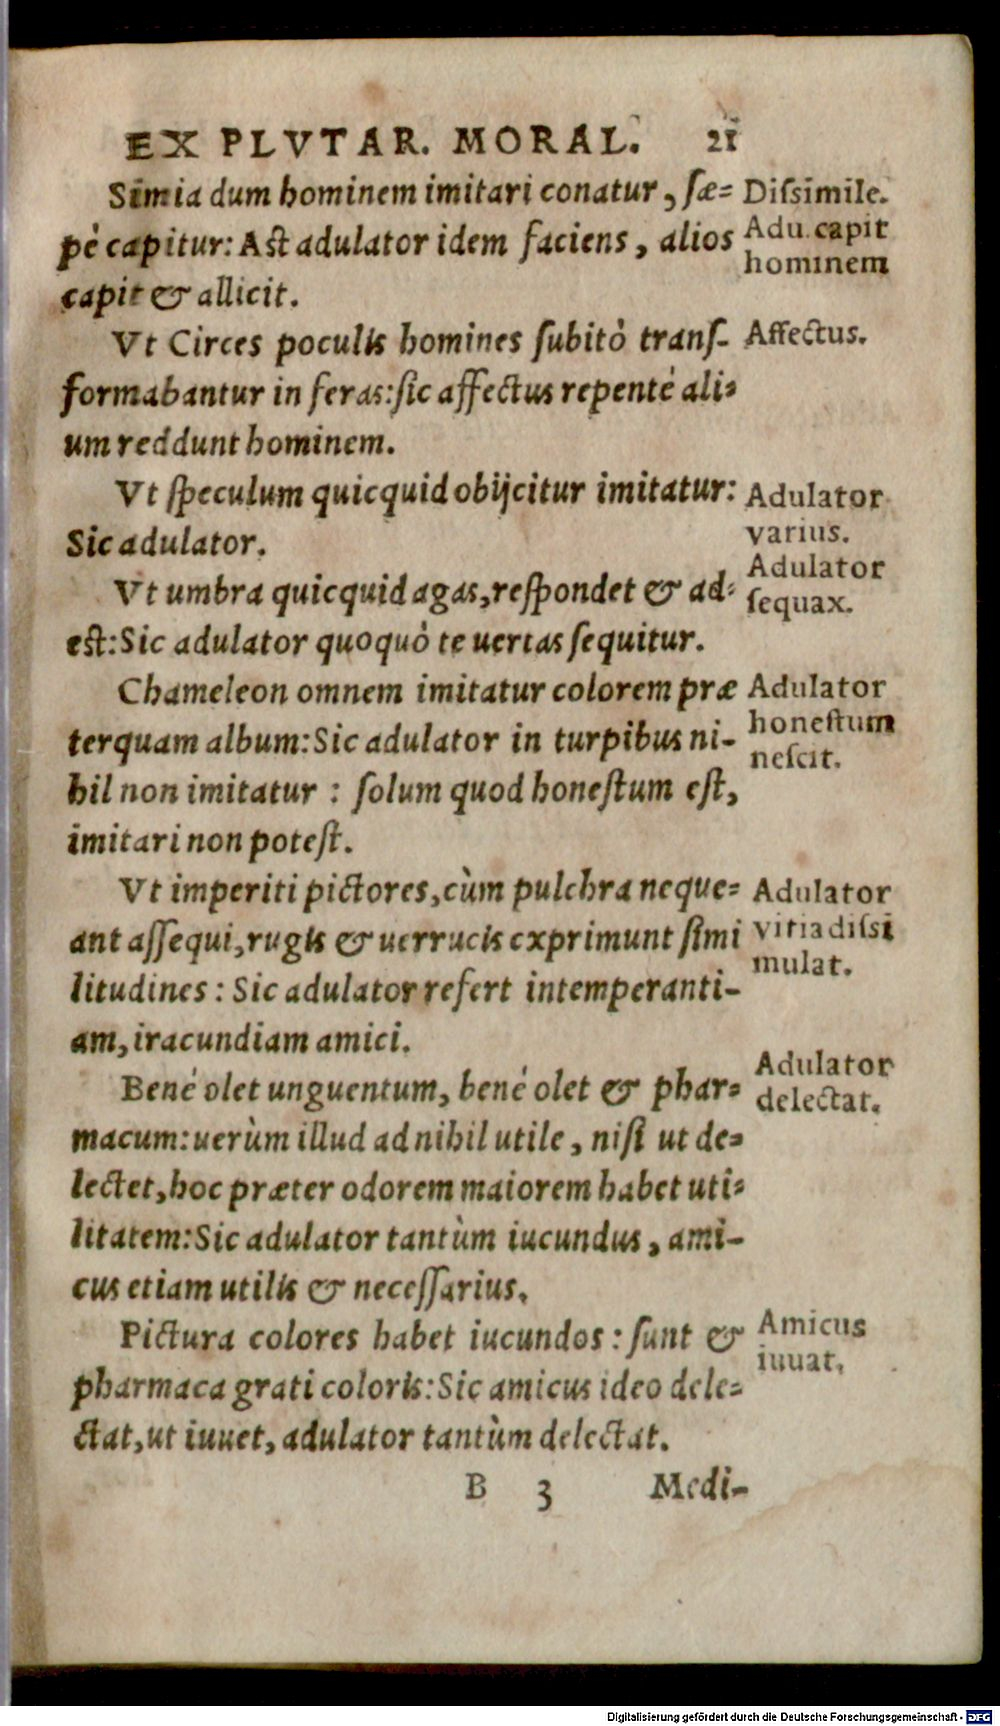 EX PLVTAR. MORAL. 21
Simia dum hominem imitari conatur, sæ=
pè capitur: Ast adulator idem faciens, alios
capit & allicit.
Dissimile.
Adu. capit
hominem
Vt Circes poculis homines subitò trans-
formabantur in feras: sic affectus repentè ali=
um reddunt hominem.
Affectus.
Vt speculum quicquid obijcitur imitatur:
Sic adulator.
Adulator
varius.
Vt umbra quicquid agas, respondet & ad=
est: Sic adulator quoquò te uertas sequitur.
Adulator
sequax.
Chameleon omnem imitatur colorem præ
terquam album: Sic adulator in turpibus ni-
hil non imitatur : solum quod honestum est,
imitari non potest.
Adulator
honestum
nescit.
Vt imperiti pictores, cùm pulchra neque=
ant assequi, rugis & uerrucis exprimunt simi
litudines : Sic adulator refert intemperanti-
am, iracundiam amici.
Adulator
vitia dissi
mulat.
Benè olet unguentum, benè olet & phar=
macum: uerùm illud ad nihil utile, nisi ut de=
lectet, hoc præter odorem maiorem habet uti=
litatem: Sic adulator tantùm iucundus, ami-
cus etiam utilis & necessarius.
Adulator
delectat.
Pictura colores habet iucundos : sunt &
pharmaca grati coloris: Sic amicus ideo dele=
ctat, ut iuuet, adulator tantùm delectat.
Amicus
iuuat.
B 3 Medi-
Digitalisierung gefördert durch die Deutsche Forschungsgemeinschaft - DFG